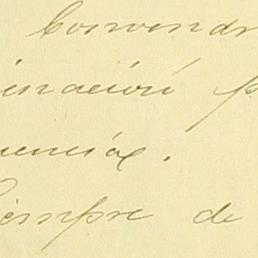 Convendr
inación p
uencia.
iempre de